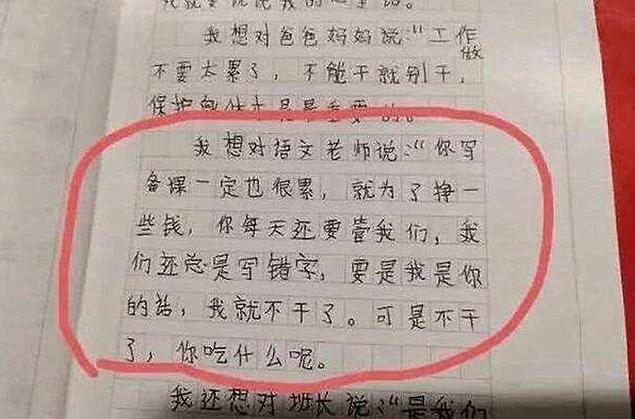 我就要说说我的心里话。
我想对爸爸妈妈说：“工作
做
不要太累了，不能干就别干，
保护身体才是最重要的。
我想对语文老师说：“你写
备课一定也很累，就为了挣一
些钱，你每天还要管我们，我
们还总是写错字，要是我是你
的话，我就不干了。可是不干
了，你吃什么呢。
我还想对班长说：“是我们